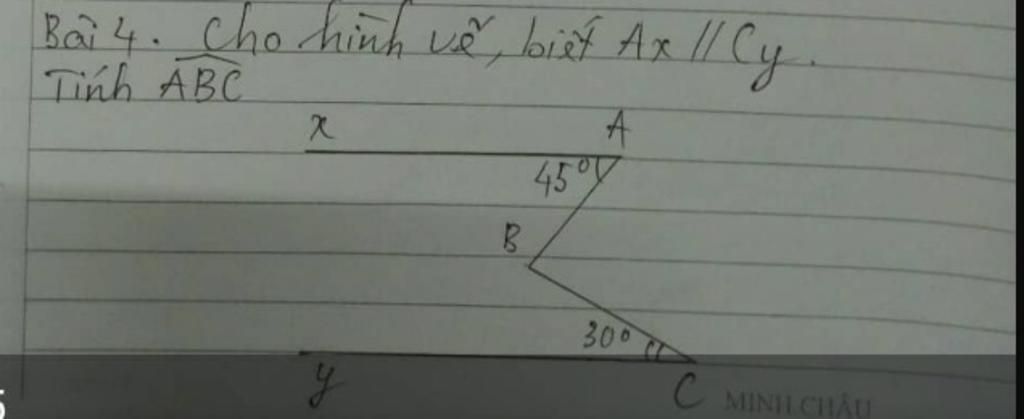 Bài 4. Cho hình vẽ, biết Ax // Cy.
Tính ABC
x A
45°
B
30°
y C
MINH CHÂU
5